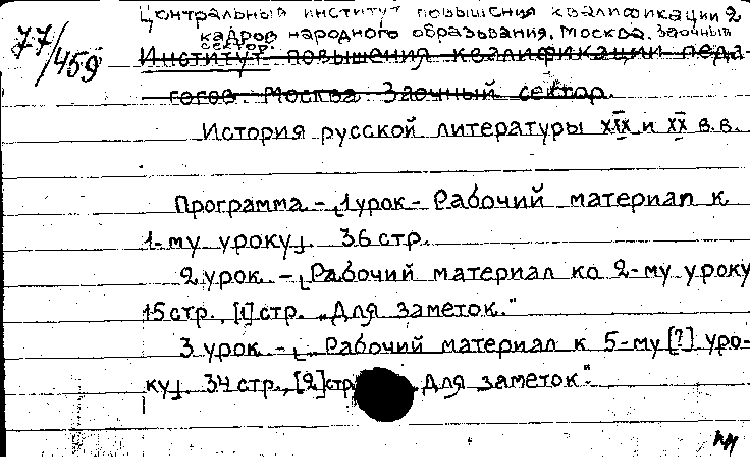 Центральный институт повышения квалификации 2
77/459
кадров народного образования. Москва. Заочный
сектор.
Институт повышения квалификации педа-
гогов. Москва. Заочный сектор.
История русской литературы XIX и XX в.в.
Программа - ⌊1 урок - Рабочий материал к
1-му уроку⌋. 36 стр.
2 урок. - ⌊Рабочий материал ко 2-му уроку
15 стр., [1] стр. „Для заметок."
3 урок. - ⌊„Рабочий материал к 5-му [?] уро-
ку⌋. 34 стр., [2] стр „Для заметок".